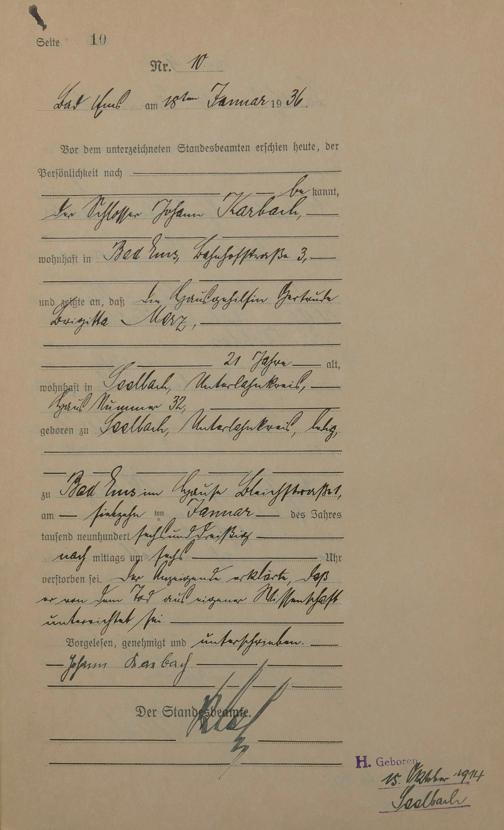 Seite 10
Nr. 10
Bad Ems am 18ten Januar 1936.
Vor dem unterzeichneten Standesbeamten erschien heute, der
Persönlichkeit nach
be kannt,
der Schlosser Johann Karbach,
wohnhaft in Bad Ems, Bahnhofstraße 3,
und zeigte an, daß die Hausgehilfin Gertrude
Brigitta Merz,
21 Jahre alt,
wohnhaft in Seelbach, Unterlahnkreis,
Haus Nummer 32,
geboren zu Seelbach, Unterlahnkreis, ledig,
zu Bad Ems im Hause Bleichstraße 1,
am siebzehn ten Januar des Jahres
tausend neunhundert sechsunddreißig
nach mittags um sechs Uhr
verstorben sei. Der Anzeigende erklärte, daß
er von dem Tod aus eigener Wissenschaft
unterrichtet sei
Vorgelesen, genehmigt und unterschrieben.
Johann Karbach
Der Standesbeamte.
H. Geboren
15. Oktober 1914
Seelbach